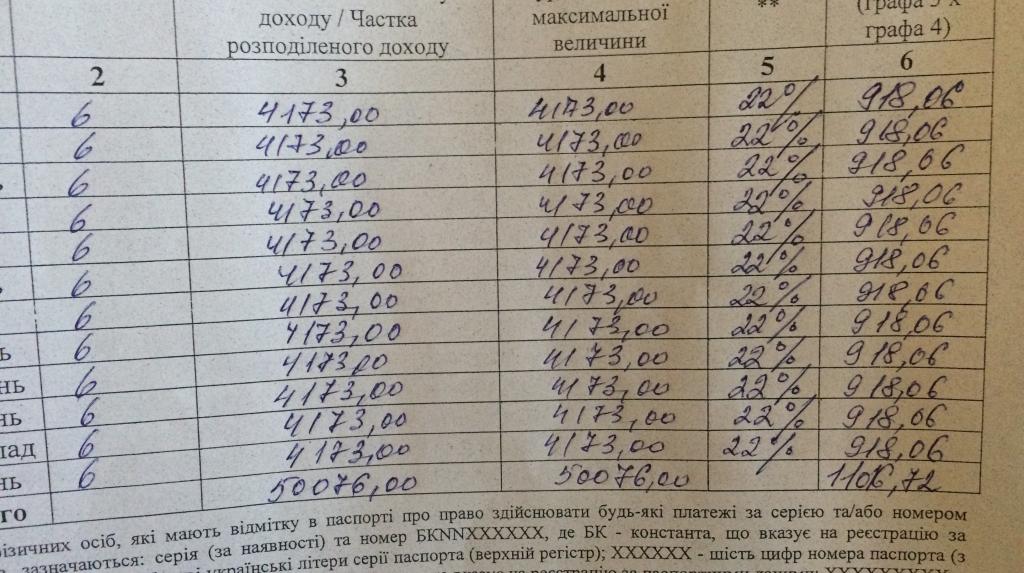 доходу / Частка розподіленого доходу максимальної величини ** (графа 5 х графа 4)
2 3 4 5 6
6 4173,00 4173,00 22% 918,06
6 4173,00 4173,00 22% 918,06
6 4173,00 4173,00 22% 918,06
6 4173,00 4173,00 22% 918,06
6 4173,00 4173,00 22% 918,06
6 4173,00 4173,00 22% 918,06
6 4173,00 4173,00 22% 918,06
ь 6 4173,00 4173,00 22% 918,06
нь 6 4173,00 4173,00 22% 918,06
нь 6 4173,00 4173,00 22% 918,06
пад 6 4173,00 4173,00 22% 918,06
нь 6 4173,00 4173,00 22% 918,06
го 50076,00 50076,00
ізичних осіб, які мають відмітку в паспорті про право здійснювати будь-які платежі за серією та/або номером
зазначаються: серія (за наявності) та номер БКNNXXXXXX, де БК - константа, що вказує на реєстрацію за
українські літери серії паспорта (верхній регістр); XXXXXX - шість цифр номера паспорта (з